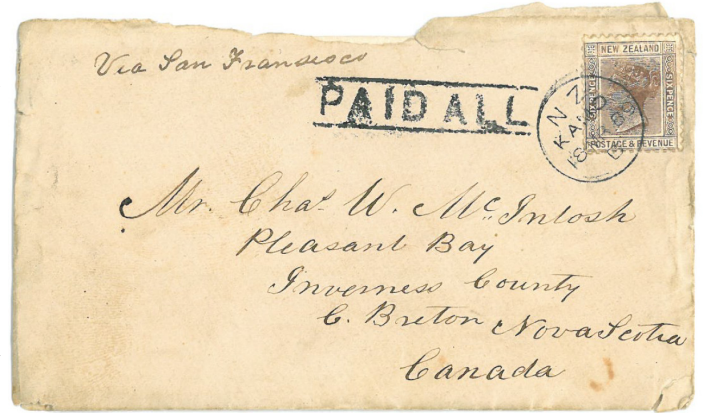 Via San Francisco
PAID ALL
NEW ZEALAND
SIXPENCE
POSTAGE & REVENUE
Mr. Chas. W. McIntosh
Pleasant Bay
Inverness County
C. Breton Nova Scotia
Canada